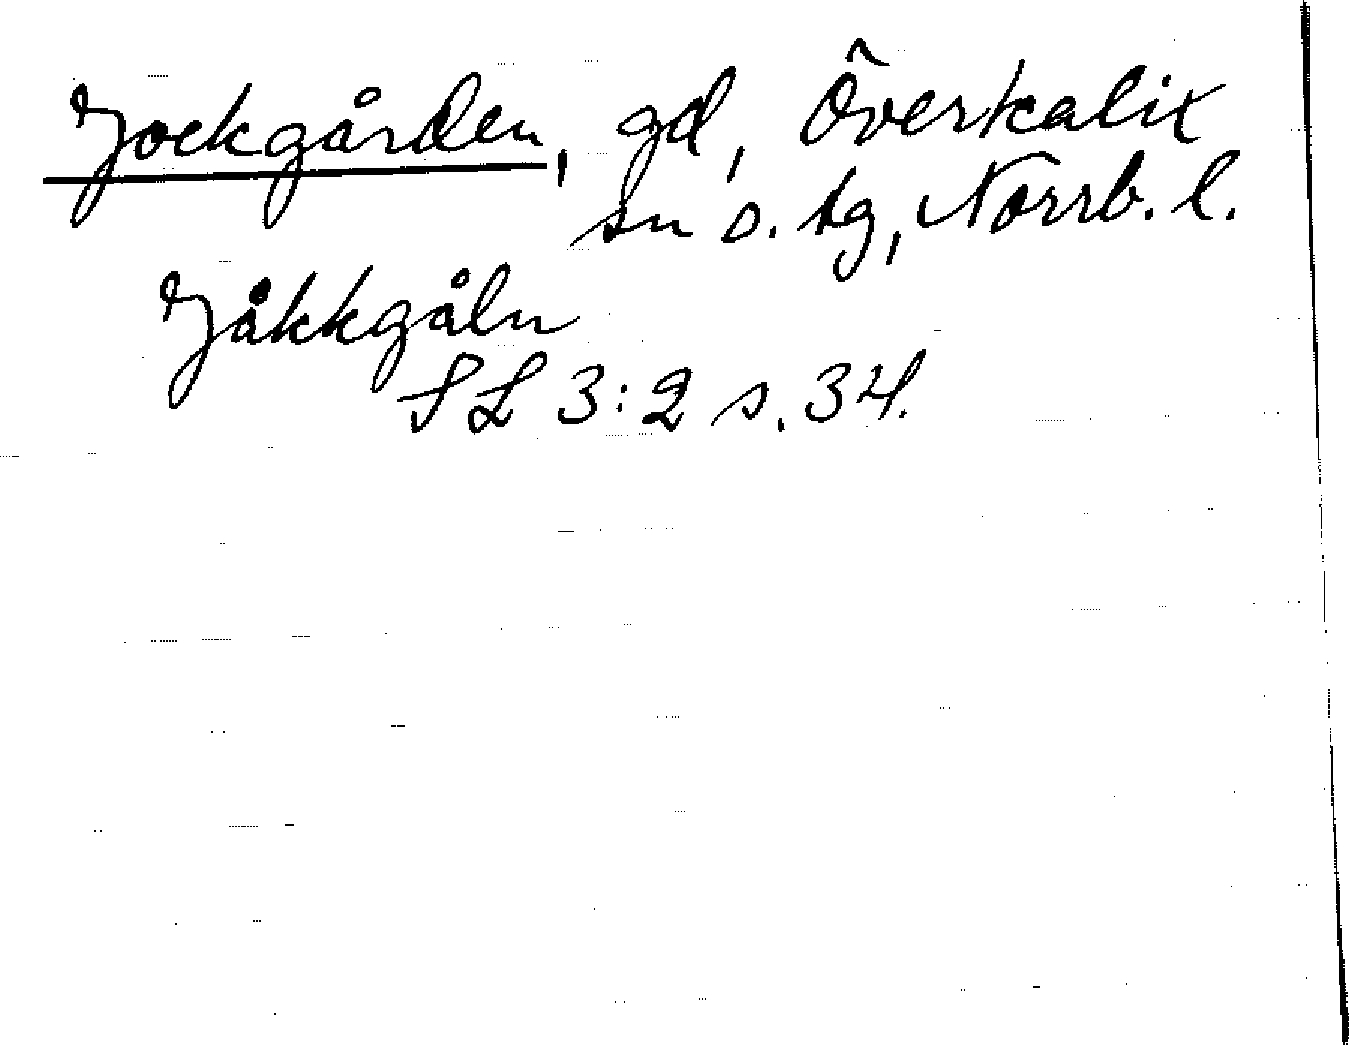 Jockgården, gd, Överkalix
sn o. tg, Norrb. l.
Jåkkgåln
SL 3:2 s. 34.